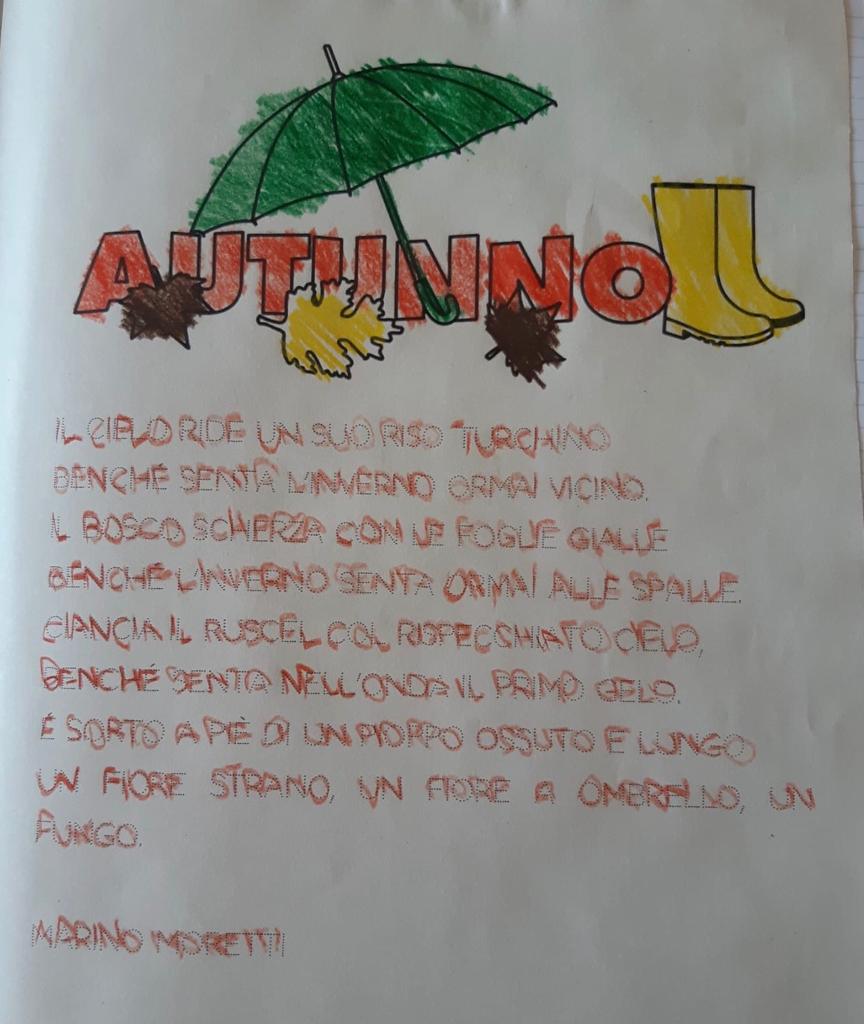 AUTUNNO
IL CIELO RIDE UN SUO RISO TURCHINO
BENCHÉ SENTA L'INVERNO ORMAI VICINO.
IL BOSCO SCHERZA CON LE FOGLIE GIALLE
BENCHÉ L'INVERNO SENTA ORMAI ALLE SPALLE.
CIANCIA IL RUSCEL COL RISPECCHIATO CIELO,
BENCHÉ SENTA NELL'ONDA IL PRIMO GELO.
É SORTO A PIÈ DI UN PIOPPO OSSUTO E LUNGO
UN FIORE STRANO, UN FIORE A OMBRELLO, UN
FUNGO.
MARINO MORETTI